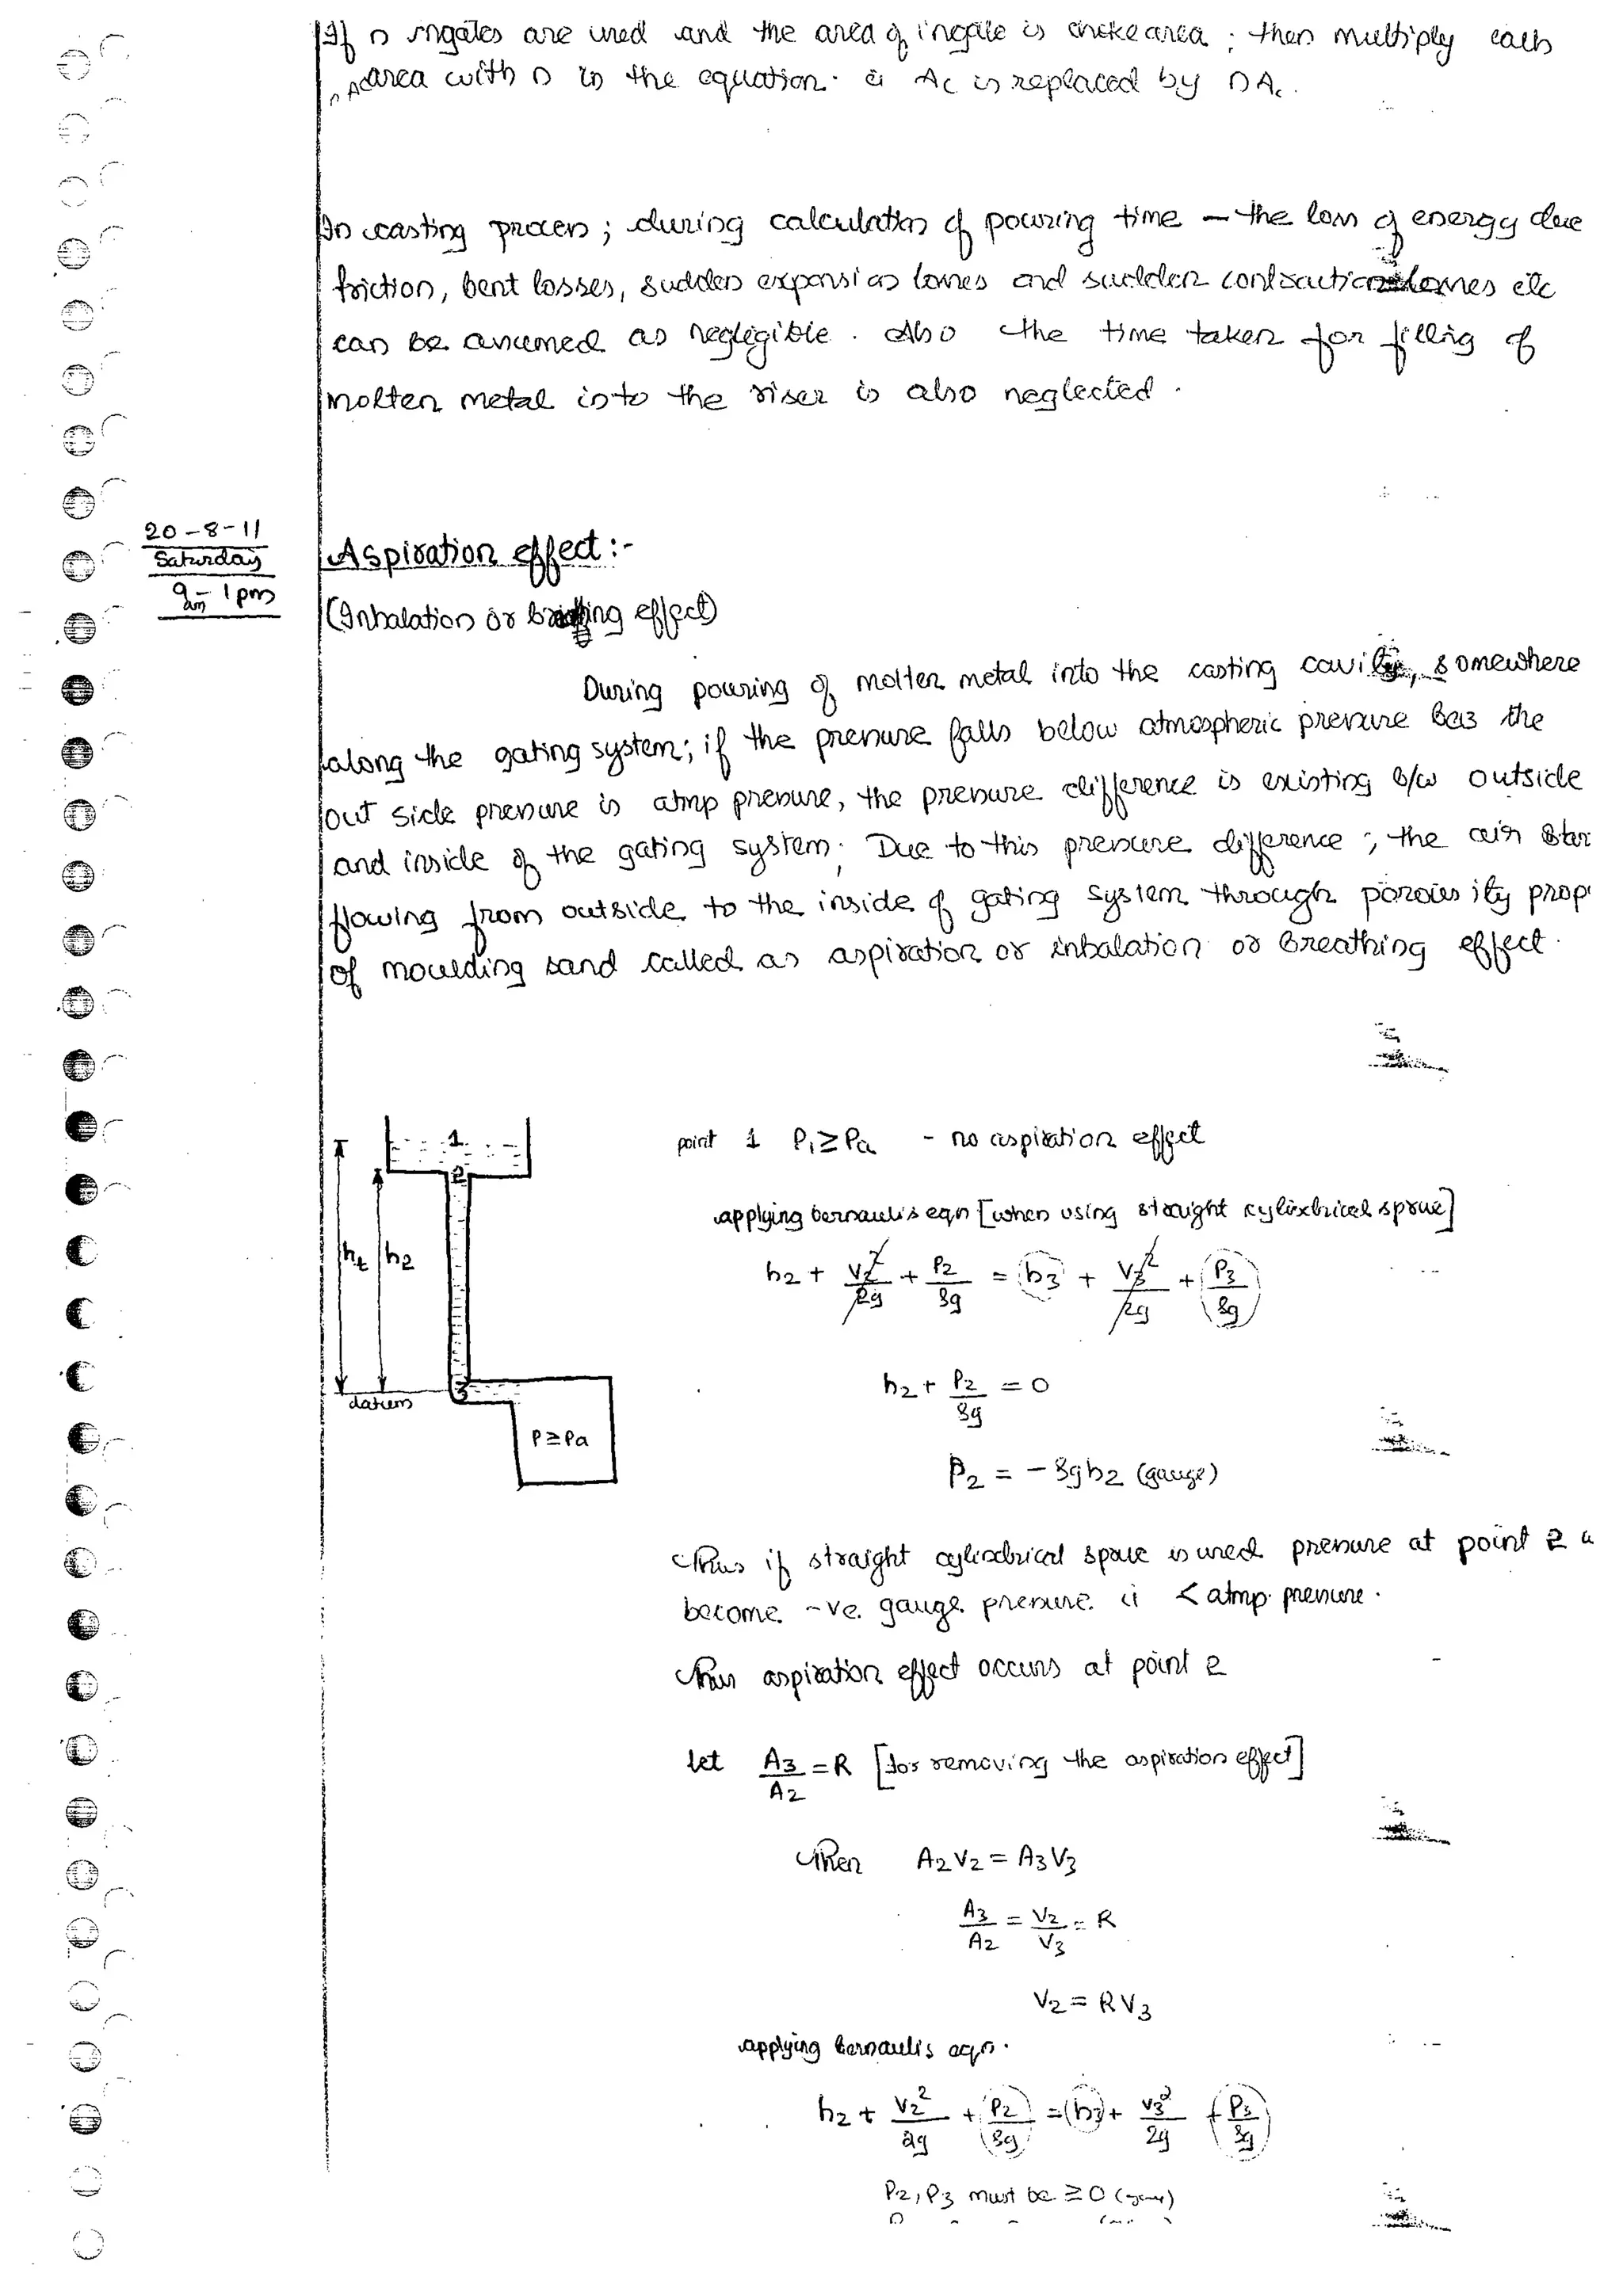 If n ingates are used and the area of ingate is choke area ; then multiply each
area with n in the equation. ii Ac is replaced by nAc.
In casting process ; during calculation of pouring time – the loss of energy due
friction, bent losses, sudden expansion losses and sudden contraction losses etc
can be assumed as neglegible . Also the time taken for filling of
molten metal into the riser is also neglected .
20-8-11
Saturday
9am - 1pm
Aspiration effect :-
(Inhalation or effect)
During pouring of molten metal into the casting cavity, somewhere
along the gating system; if the pressure falls below atmospheric pressure the
out side pressure is atmp pressure, the pressure difference is existing b/w outside
and inside of the gating system. Due to this pressure difference ; the air star
flowing from outside to the inside of gating system through porousity prop
of moulding sand called as aspiration or inhalation or breathing effect.
1
2
ht h2
datum
3
P≥Pa
point 1 P1≥Pa - no aspiration effect
applying bernaulis eqn [when using straight cylindrical sprue]
h2 + V2²/2g + P2/ρg = h3 + V3²/2g + P3/ρg
h2 + P2/ρg = 0
P2 = -ρgh2 (gauge)
Thus if straight cylindrical sprue is used pressure at point 2
become -ve gauge pressure ii < atmp. pressure .
Thus aspiration effect occurs at point 2
let A3/A2 = R [for removing the aspiration effect]
Then A2V2 = A3V3
A3/A2 = V2/V3 = R
V2 = RV3
applying bernaulis eqn.
h2 + V2²/2g + P2/ρg = h3 + V3²/2g + P3/ρg
P2, P3 must be ≥0 (gauge)